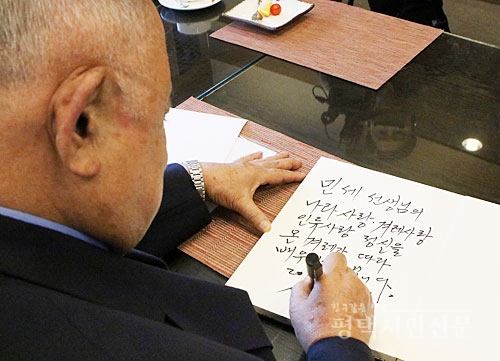 민세 선생님의
나라사랑. 겨레사랑
인류사랑 정신을
온 겨레가 따라
배우
다.
평택시민신문